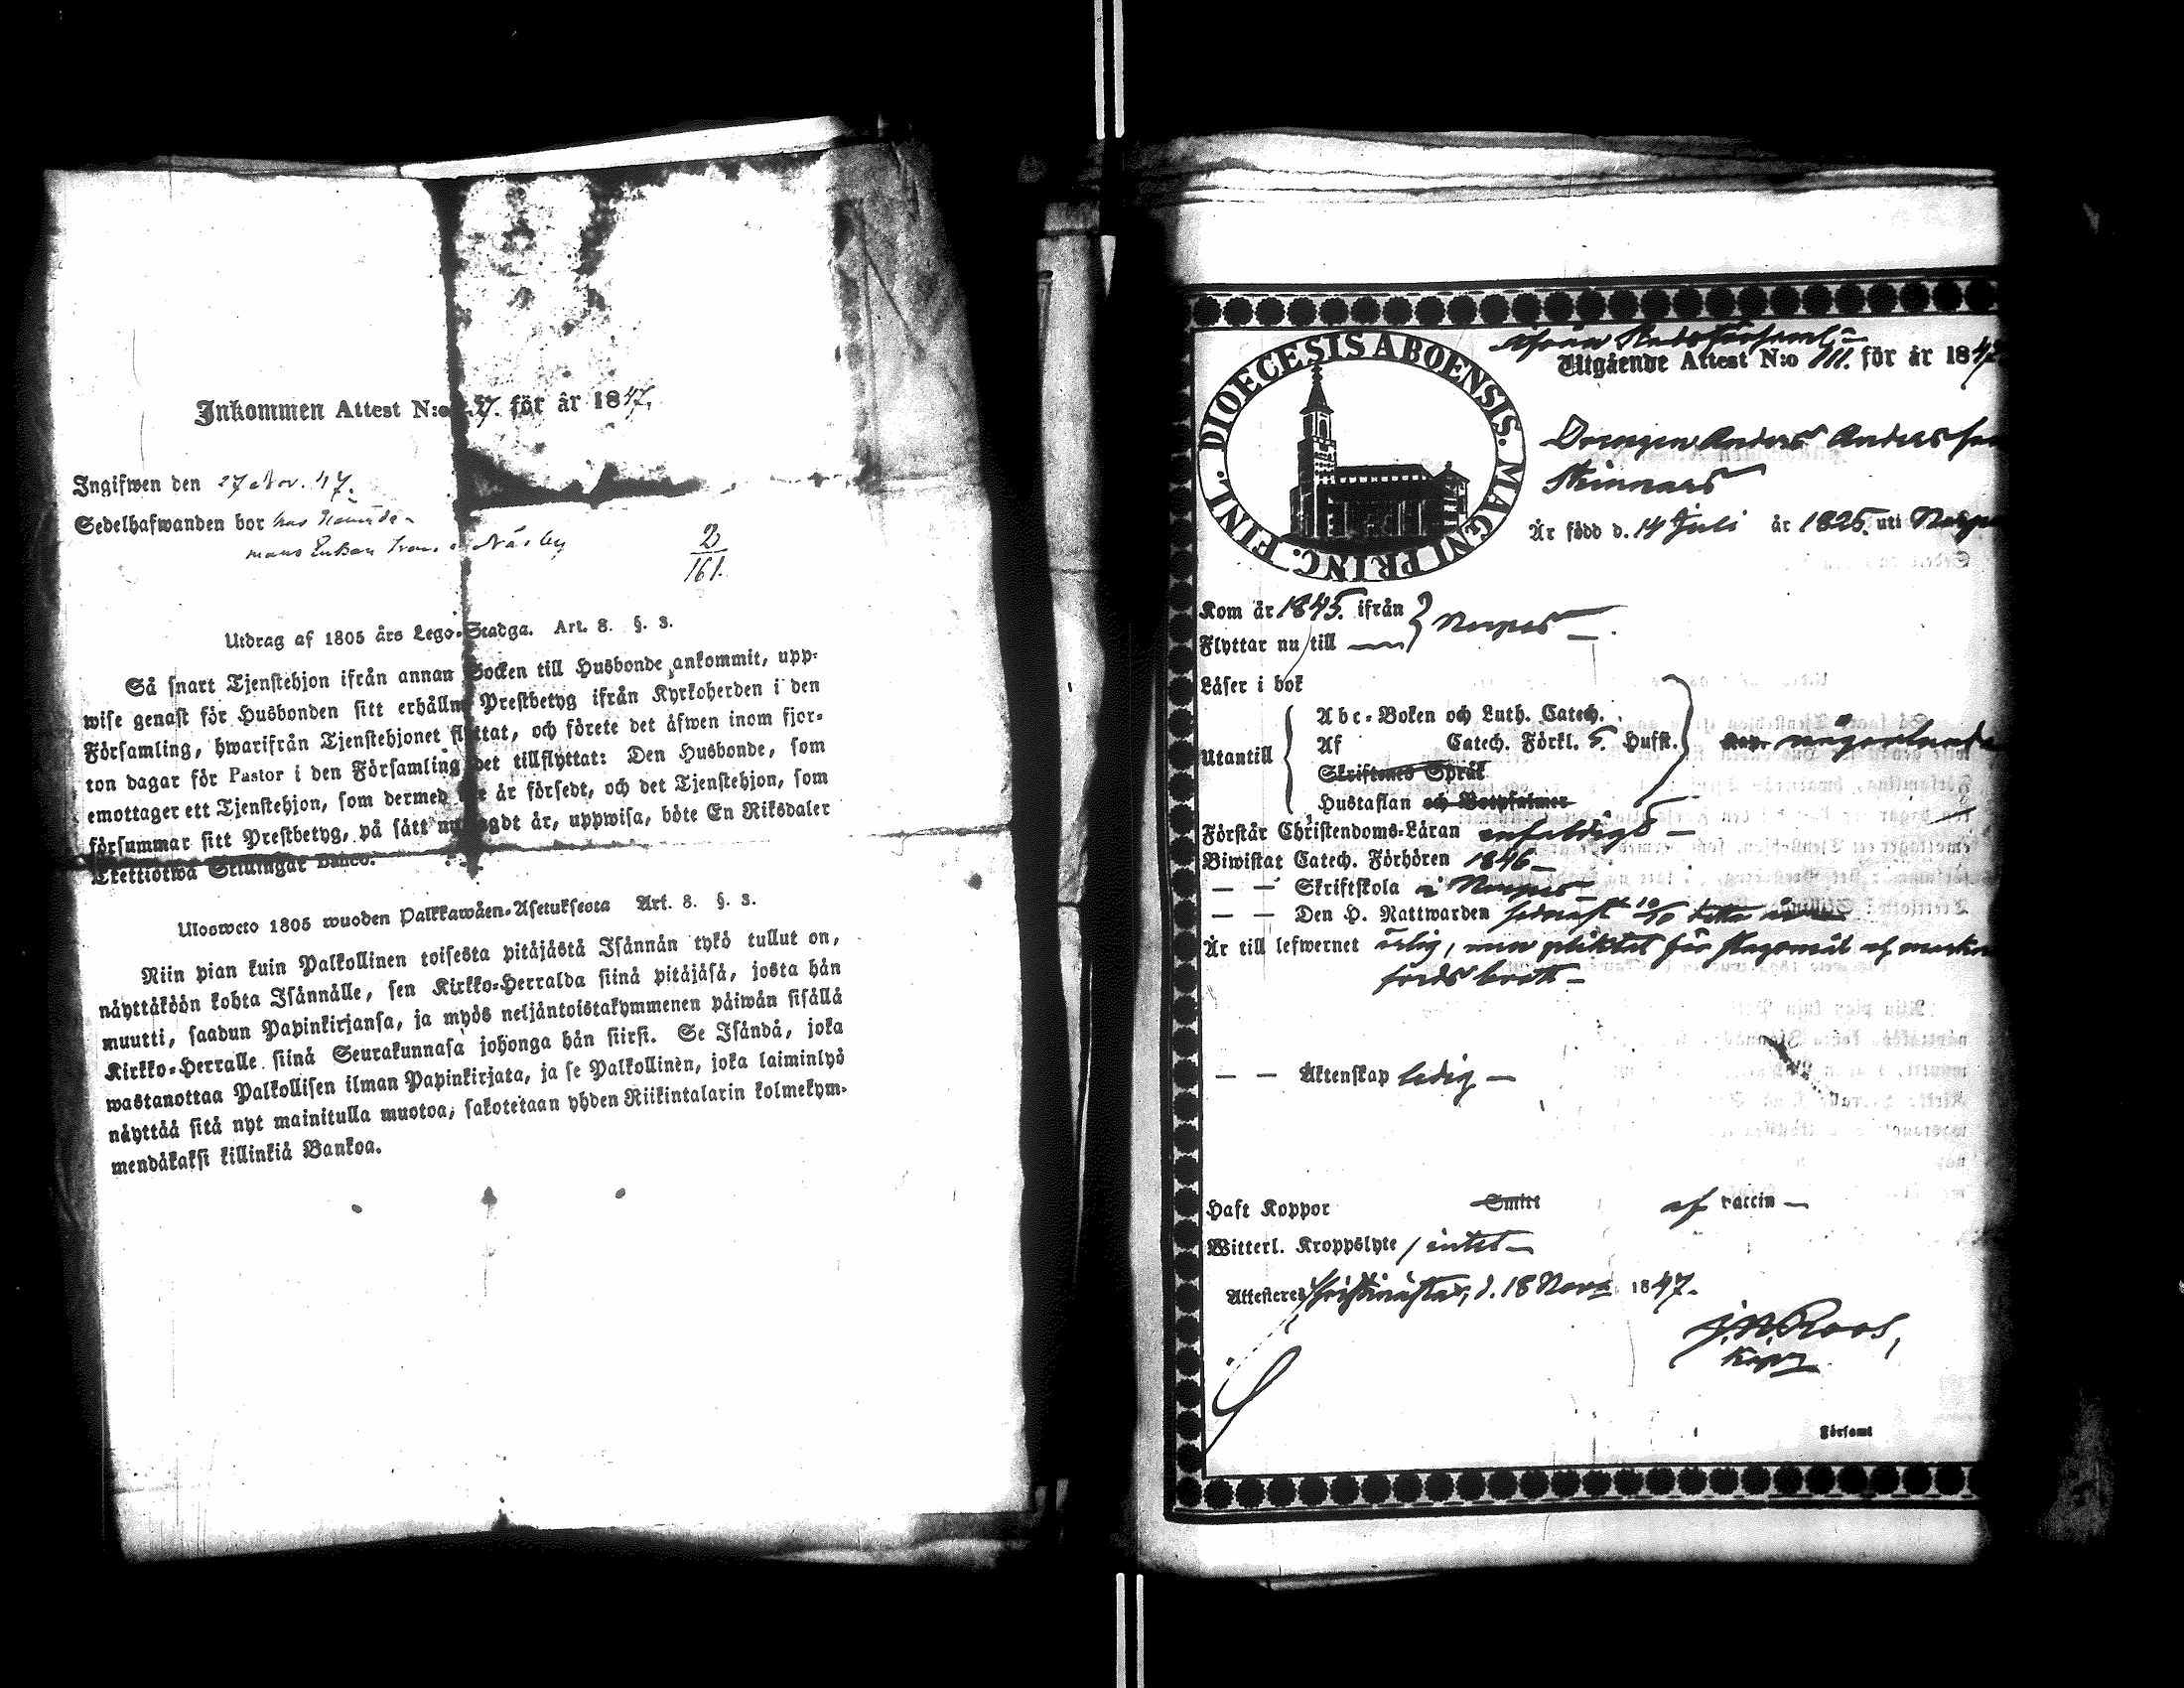 Inkommen Attest N:o 7. för år 1847.
Ingifwen den 27 Nov. 47.
Sedelhafwanden bor hos
Näsby
2
161.
Utdrag af 1805 års Lego-Stadga. Art. 8. §. 3.
Så snart Tjenstehjon ifrån annan Socken till Husbonde ankommit, upp-
wise genast för Husbonden sitt erhållne Prestbetyg ifrån Kyrkoherden i den
Församling, hwarifrån Tjenstehjonet flyttat, och förete det åfwen inom fjor-
ton dagar för Pastor i den Församling det tillflyttat: Den Husbonde, som
emottager ett Tjenstehjon, som dermed är försedt, och det Tjenstehjon, som
försummar sitt Prestbetyg, på sått nu sagdt år, uppwisa, böte En Riksdaler
Trettiotwå Skillingar Banco.
Ulosweto 1805 wuoden Palkkawåen-Asetuksesta Art. 8. §. 3.
Niin pian kuin Palkollinen toisesta pitåjåstå Isånnån tykö tullut on,
nåyttåköön kohta Isånnålle, sen Kirkko-Herralda siinå pitåjåså, josta hån
muutti, saadun Papinkirjansa, ja myös neljåntoistakymmenen påiwån sisållå
Kirkko-Herralle siinå Seurakunnasa johonga hån siirsi. Se Isåndå, joka
wastanottaa Palkollisen ilman Papinkirjata, ja se Palkollinen, joka laiminlyö
nåyttåå sitå nyt mainitulla muotoa, sakotetaan yhden Riikintalarin kolmekym-
mendåkaksi killinkiå Bankoa.
DIOECESIS ABOENSIS. MAGNI PRINC. FINL.
ifrån Stadsförsaml:
Utgående Attest N:o 111. för år 1847
Drengen Anders Andersson
Är född d. 14 Juli år 1825. uti Nerpes
Kom år 1845. ifrån } Nerpes
Flyttar nu till
Låser i bok
Utantill
Abc-Boken och Luth. Catech.
Af Catech. Förkl. 5. Hufst. någorlunda
Skriftenes Språk
Hustaflan och Botpsalmer
Förstår Christendoms-Låran enfaldigt
Biwistat Catech. Förhören 1846
— — Skriftskola i Nerpes
— — Den H. Nattwarden sednast 10/10 detta
Är till lefwernet ärlig, men pliktat för slagsmål
brott
— — Åktenskap ledig
Haft Koppor Smitt af vaccin
Witterl. Kroppslyte intet
Attesteres Christinestad, d. 18 Nov. 1847.
J. N. Roos,
Församl